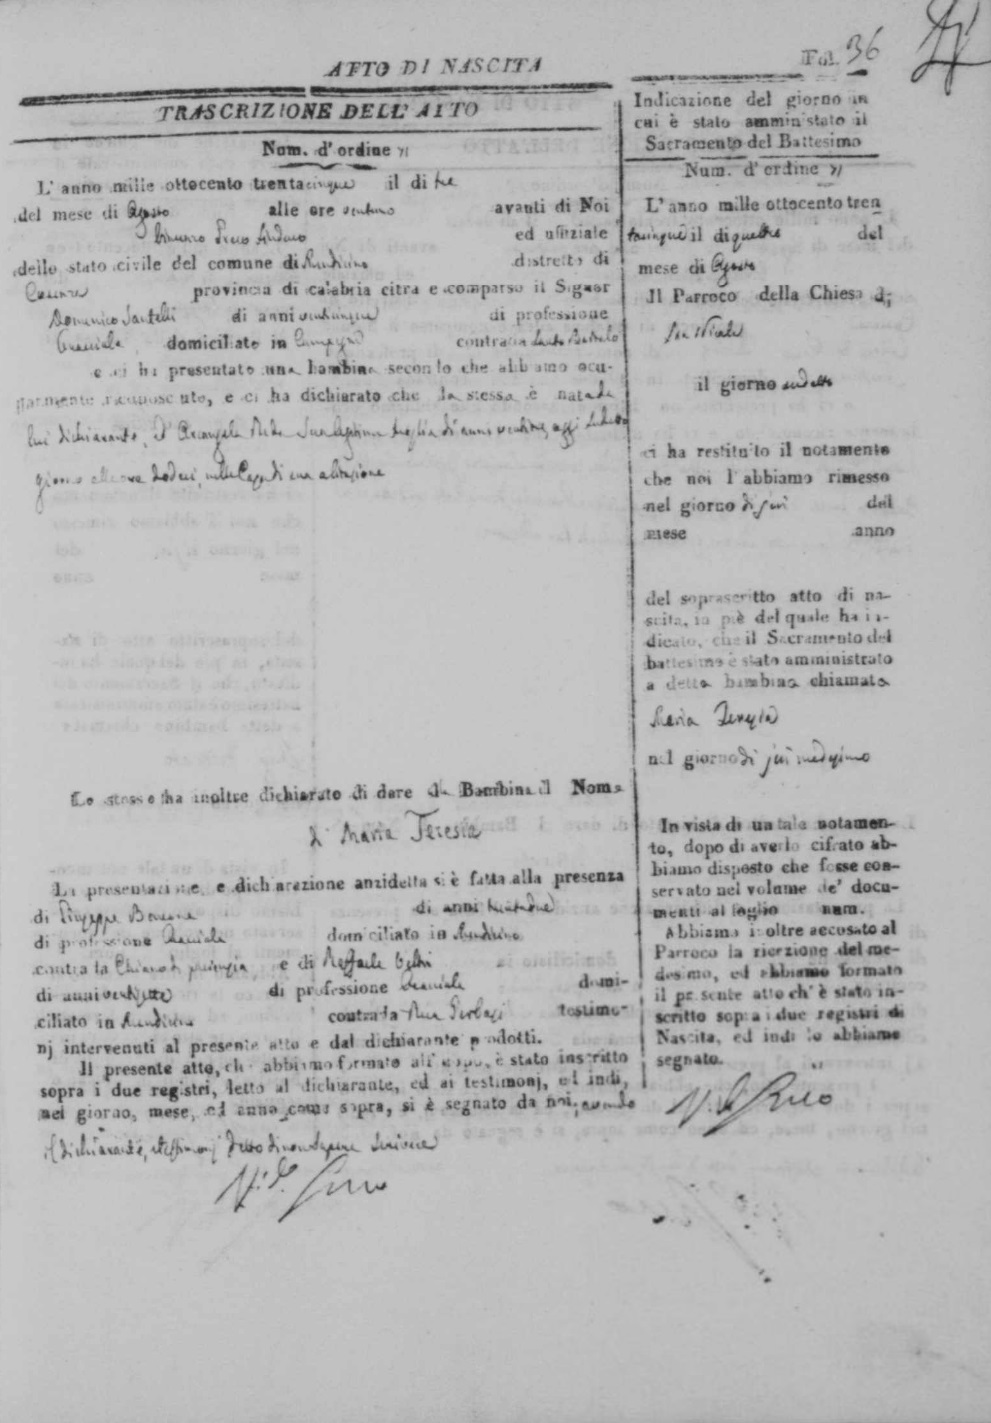 ATTO DI NASCITA
Fol. 36
TRASCRIZIONE DELL' ATTO
Num. d' ordine 71
L' anno mille ottocento trentacinque il di tre
del mese di Agosto alle ore ventuno avanti di Noi
Sindaco ed uffiziale
dello stato civile del comune di Rendicino distretto di
Cosenza provincia di calabria citra e comparso il Signor
Domenico Santelli di anni ventcinque di professione
Bracciale domiciliato in Campagna contrada Santo
e ci ha presentato una bambina secondo che abbiamo ocu-
larmente riconosciuto, e ci ha dichiarato che la stessa è nata da
lui dichiarante, e d' Arcangela sua legittima moglie di anni ventitre, oggi sudetto
giorno alle ore dodeci, nella Casa di sua abitazione
Lo stesso ha inoltre dichiarato di dare alla Bambina il Nome
di Maria Teresia
La presentazione, e dichiarazione anzidetta si è fatta alla presenza
di Giuseppe di anni trentadue
di professione Bracciale domiciliato in Rendicino
contrada e di Raffaele
di anni ventisette di professione Bracciale domi-
ciliato in Rendicino contrada testimo-
nj intervenuti al presente atto e dal dichiarante prodotti.
Il presente atto, che abbiamo formato all' uopo, è stato inscritto
sopra i due registri, letto al dichiarante, ed ai testimonj, ed indi,
nel giorno, mese, ed anno come sopra, si è segnato da noi, avendo
il dichiarante, e testimonj detto di non sapere scrivere
Indicazione del giorno in
cui è stato amministato il
Sacramento del Battesimo
Num. d' ordine 71
L' anno mille ottocento tren
tacinque il di quattro del
mese di Agosto
Il Parroco della Chiesa di
San Nicola
il giorno sudetto
ci ha restituito il notamento
che noi l' abbiamo rimesso
nel giorno di jeri del
mese anno
del soprascritto atto di na-
scita, in piè del quale ha in-
dicato, che il Sacramento del
battesimo è stato amministrato
a detta bambina chiamata
Maria Teresia
nel giorno di jeri medesimo
In vista di un tale notamen-
to, dopo di averlo cifrato ab-
biamo disposto che fosse con-
servato nel volume de' docu-
menti al foglio num.
Abbiamo inoltre accusato al
Parroco la ricezione del me-
desimo, ed abbiamo formato
il presente atto ch' è stato in-
scritto sopra i due registri di
Nascita, ed indi lo abbiamo
segnato.